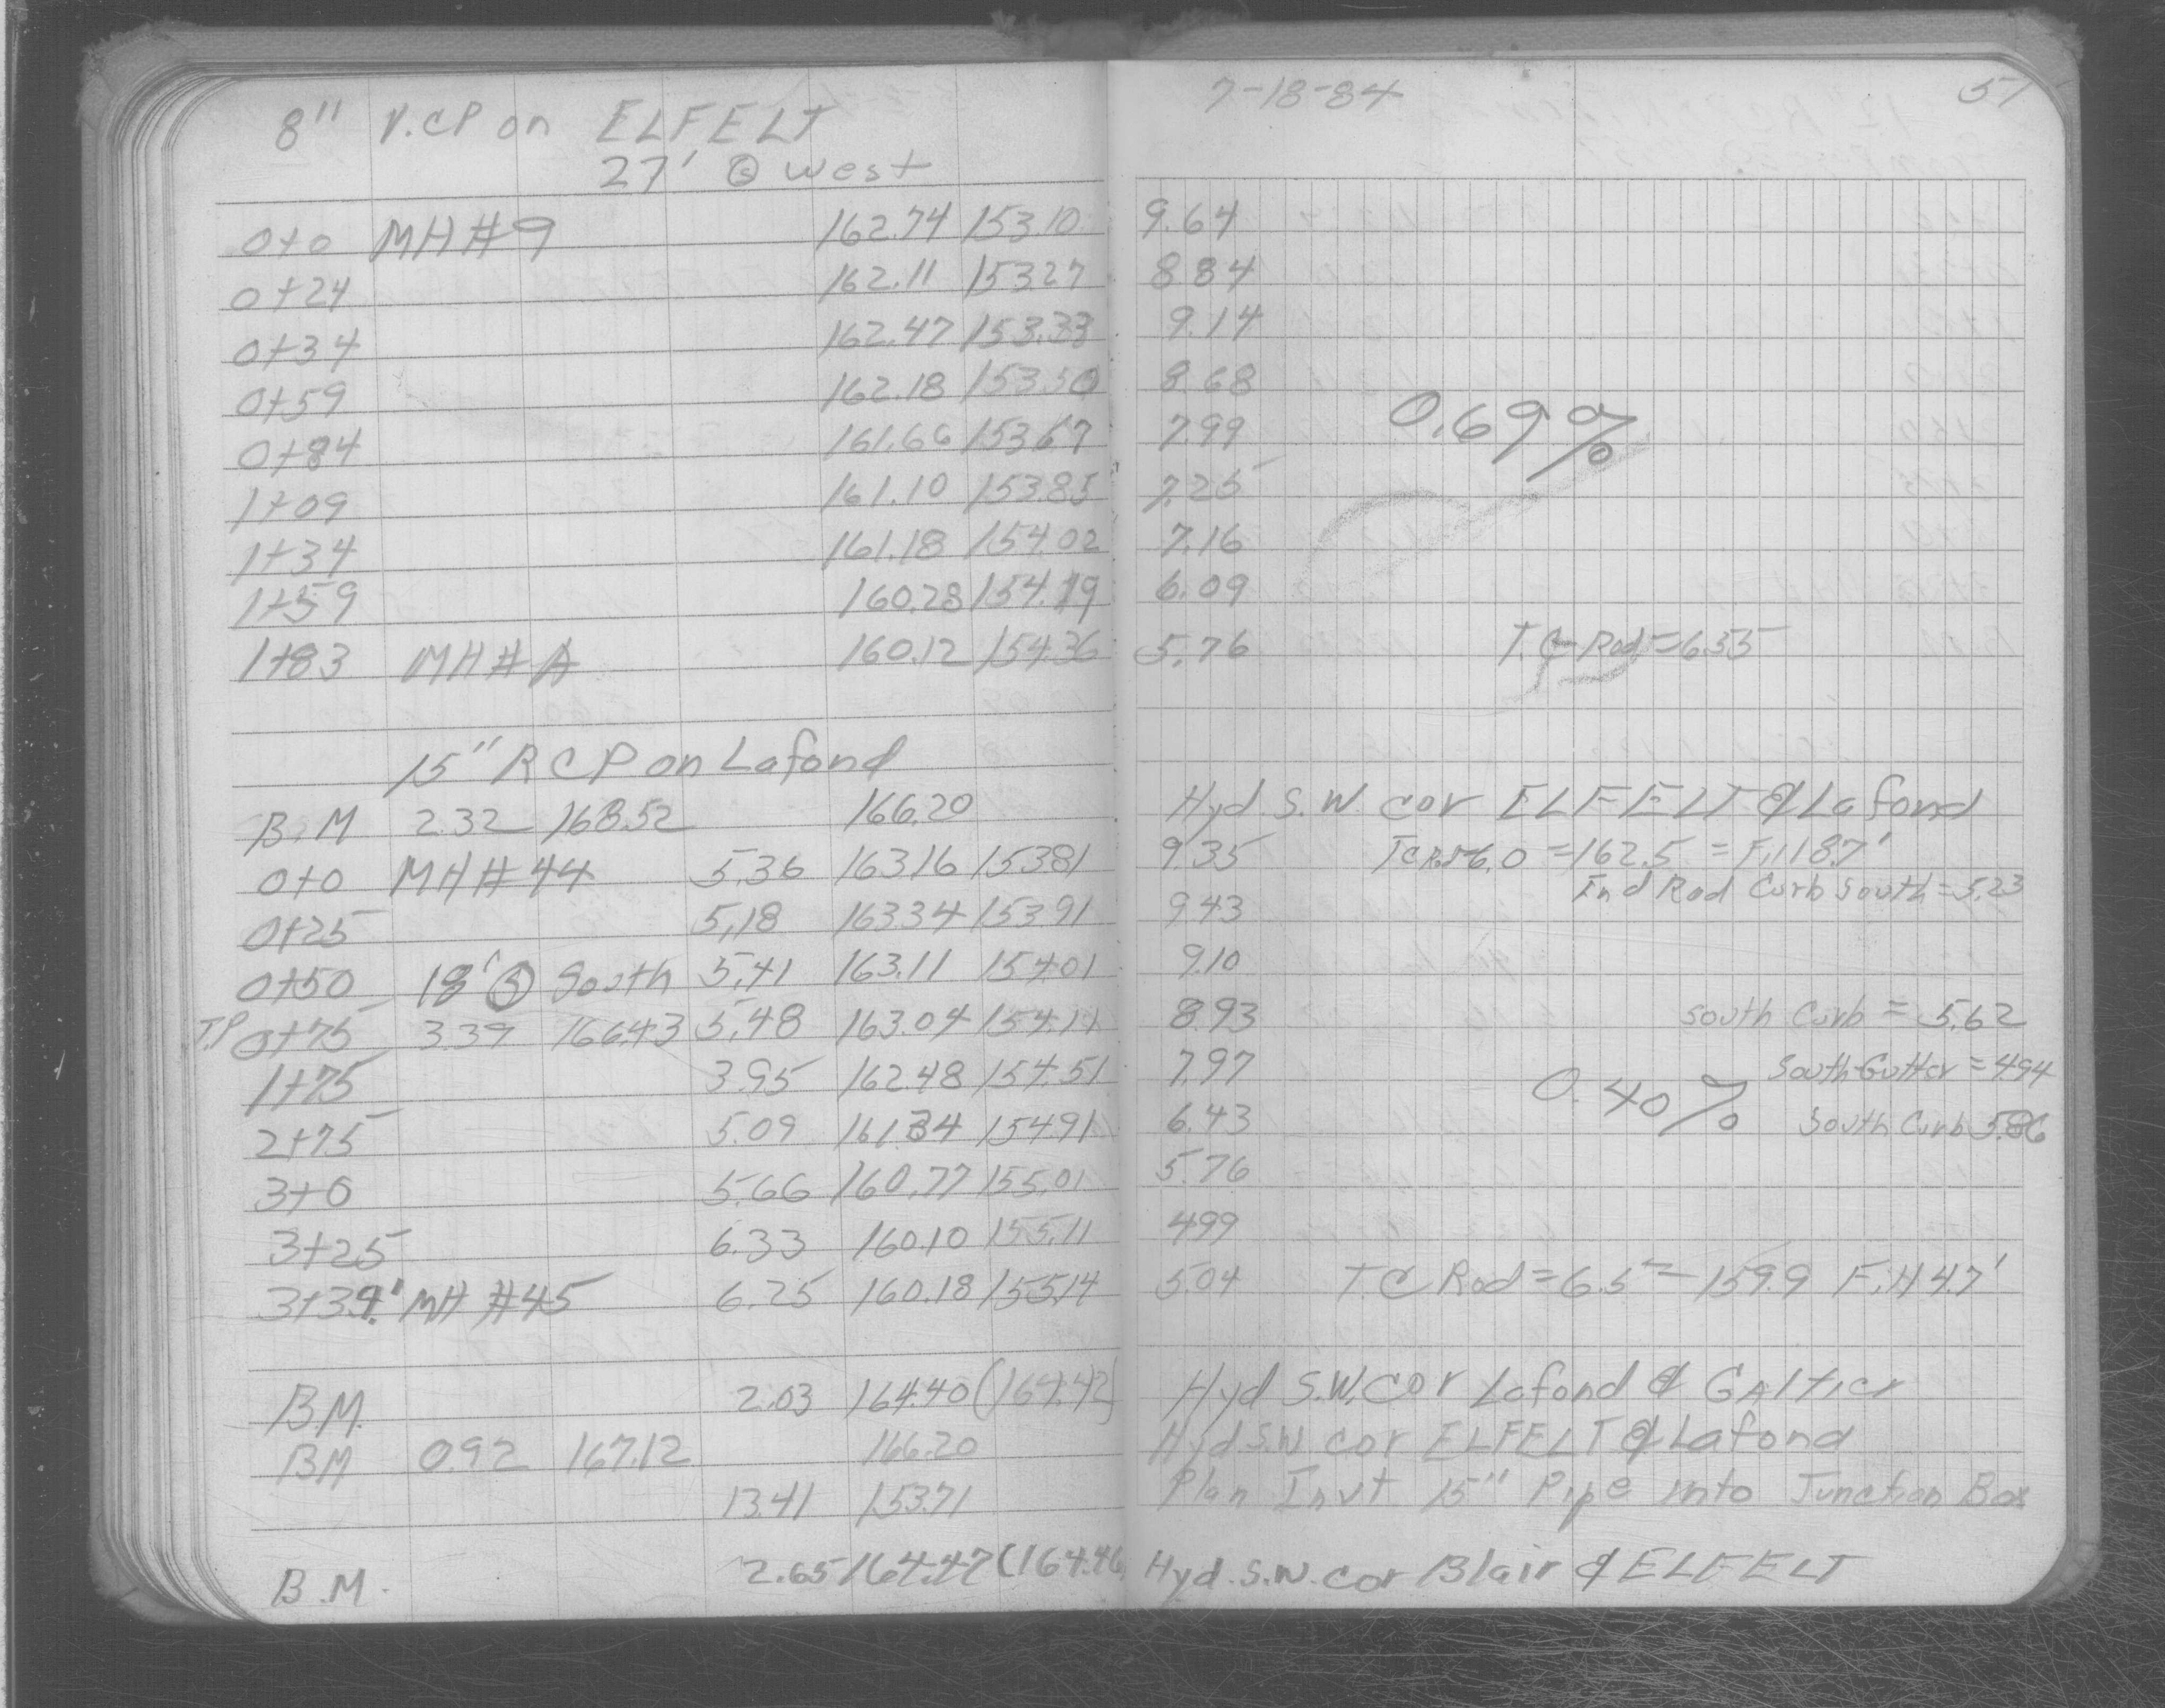 8" V.CP on ELFELT
27' @ West
0+0 MH#9 162.74 153.10
0+24 162.11 153.27
0+34 162.47 153.33
0+59 162.18 153.50
0+84 161.66 153.67
1+09 161.10 153.85
1+34 161.18 154.02
1+59 160.28 154.19
1+83 MH#A 160.12 154.36
15" RCP on Lafond
B.M 2.32 168.52 166.20
0+0 MH#44 5.36 163.16 153.81
0+25 5.18 163.34 153.91
0+50 18' South 5.41 163.11 154.01
T.P 0+75 3.39 166.43 5.48 163.04 154.11
1+75 3.95 162.48 154.51
2+75 5.09 161.34 154.91
3+0 5.66 160.77 155.01
3+25 6.33 160.10 155.11
3+34' MH #45 6.25 160.18 155.14
B.M. 2.03 164.40 (164.42)
BM 0.92 167.12 166.20
13.41 153.71
B.M. 2.65 164.47 (164.46
7-18-84 57
9.64
8.84
9.14
8.68
0.69%
7.99
7.25
7.16
6.09
5.76 T.C-Rod=6.55
Hyd. S.W. cor ELFELT & Lafond
9.35 TC Rod-6.0 =162.5 = F.H 8.7'
Ind Rod Curb South=5.23
9.43
9.10
8.93 South Curb = 5.62
7.97 South-Gutter=4.94
0.40%
6.43 South Curb 5.86
5.76
4.99
5.04 T.C Rod=6.5=159.9 F.H 4.7'
Hyd S.W.cor Lafond & GAltier
Hyd S.W. cor ELFELT & Lafond
Plan Invt 15" Pipe into Junction Box
Hyd. S.W. cor Blair & ELFELT